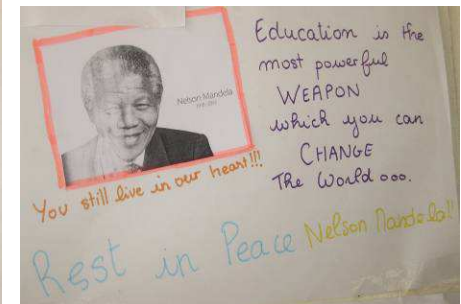 Nelson Mandela
Education is the
most powerful
WEAPON
which you can
CHANGE
The World ooo.
You still live in our heart!!!
Rest in Peace Nelson Mandela!!